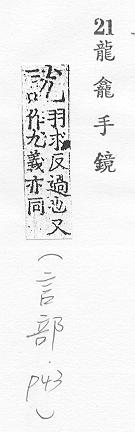 21 龍龕手鏡
訧羽求反過也又
作尤義亦同
（言部．p43）